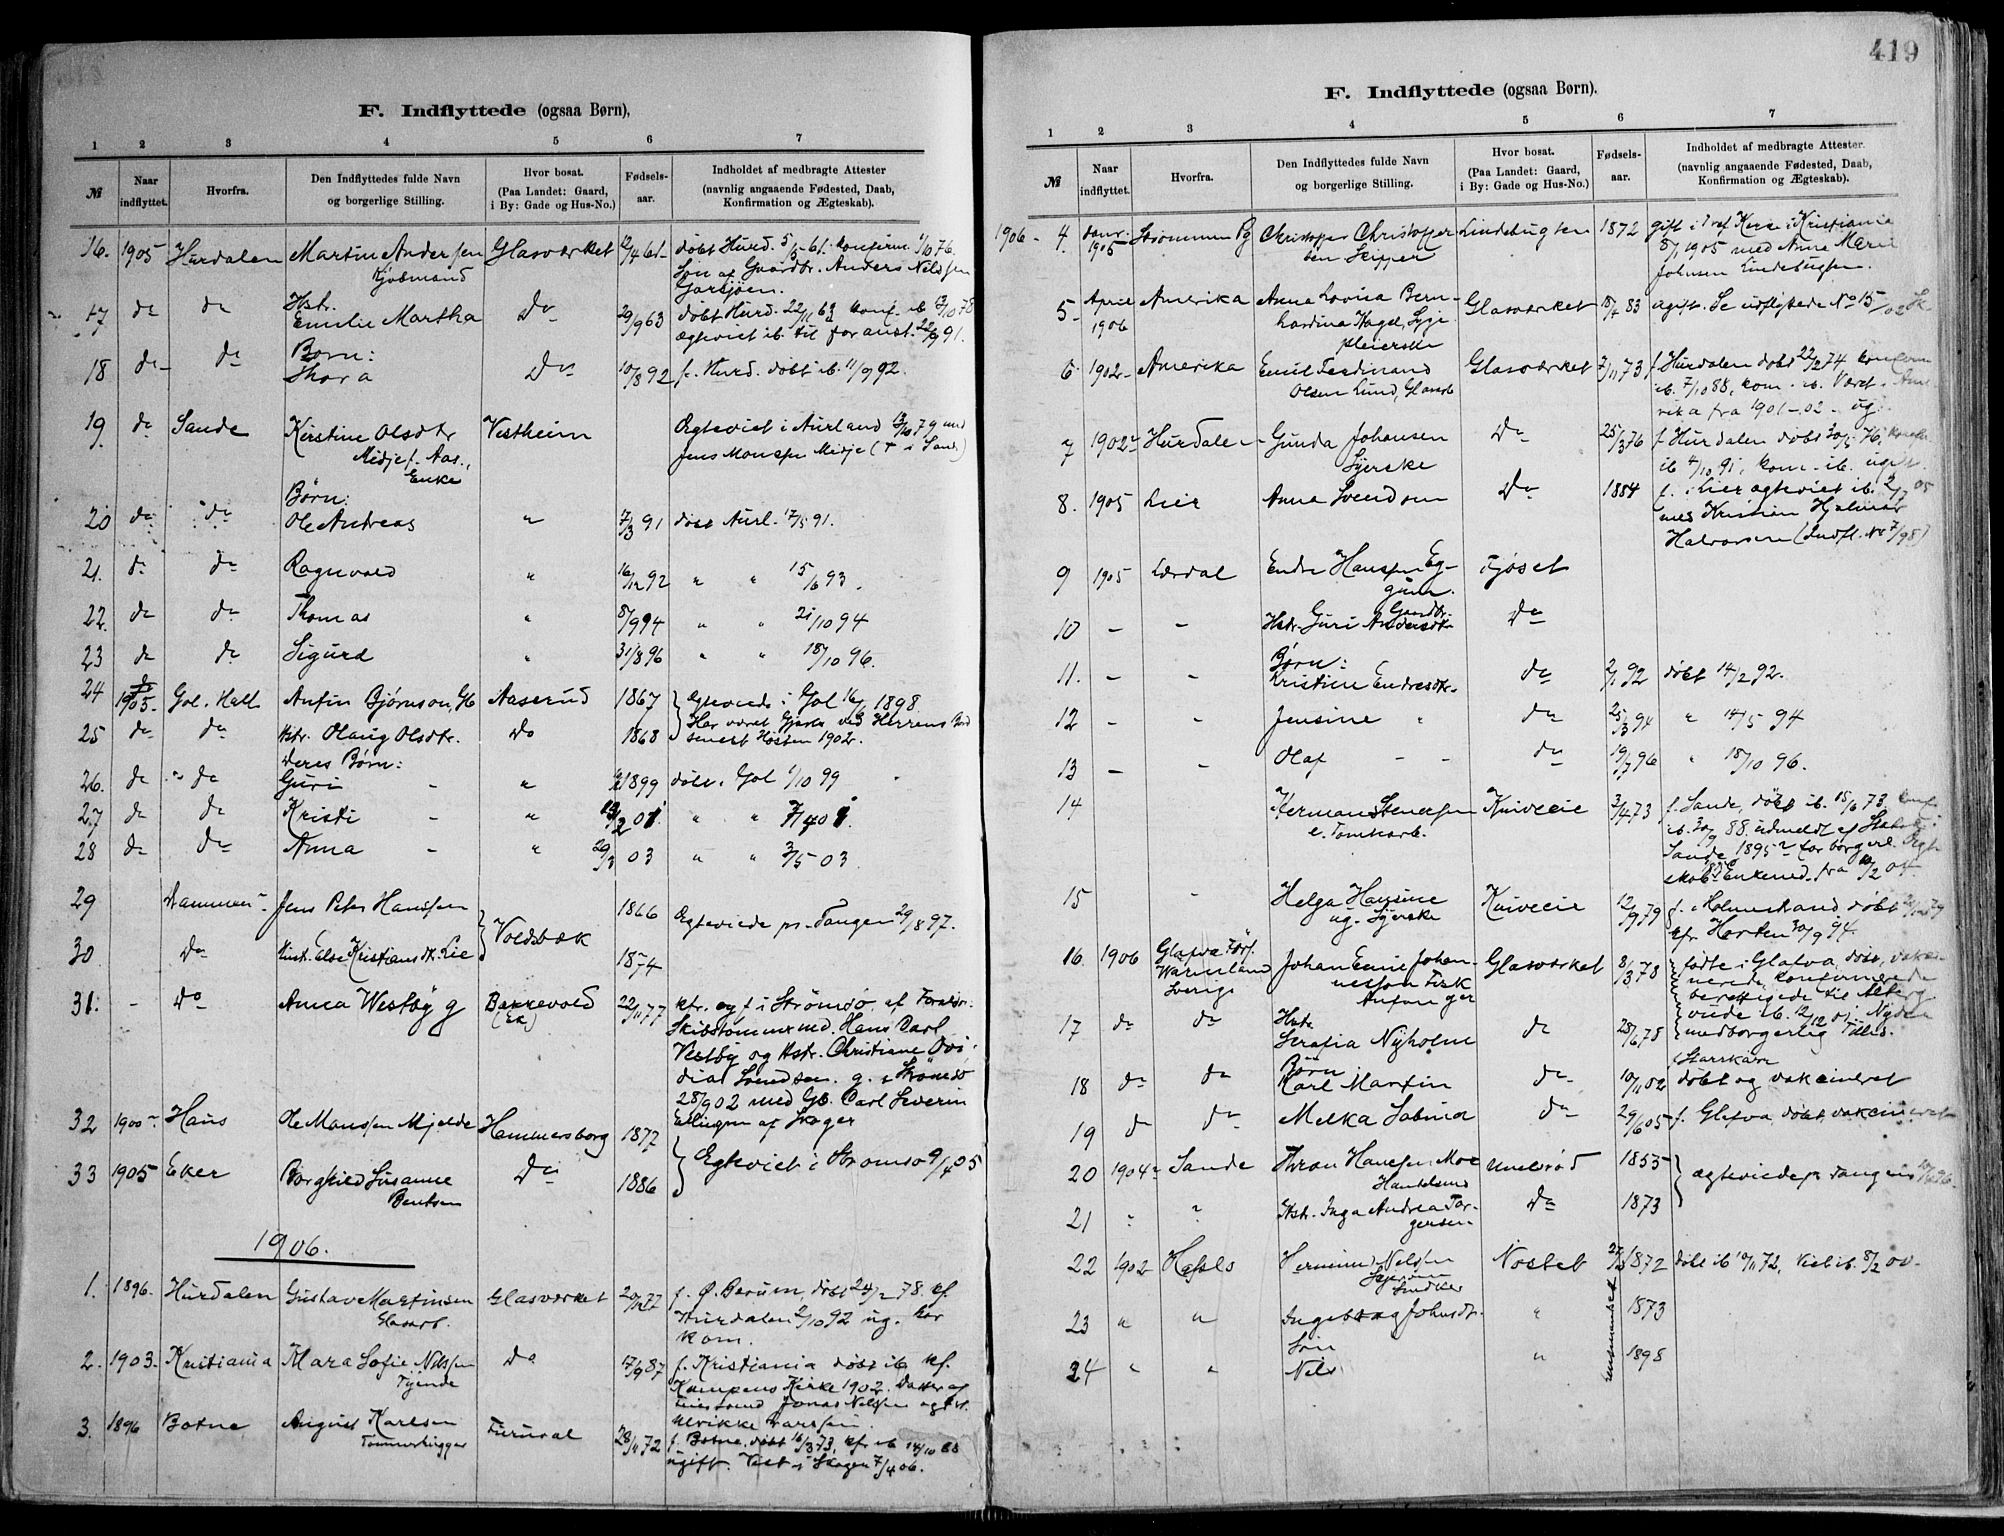 F. Indflyttede (ogsaa Børn),
1 2 3 4 5 6 7
№
Naar indflyttet.
Hvorfra.
Den Indflyttedes fulde Navn og borgerlige Stilling.
Hvor bosat. (Paa Landet: Gaard, i By: Gade og Hus-No.)
Fødsels-aar.
Indholdet af medbragte Attester (navnlig angaaende Fødested, Daab, Konfirmation og Ægteskab).
16. 1905 Hurdalen Martin Andersen Glasværket 12/4 61 døbt Hurd. 5/5 61. konfirm. 1/10 76.
Kjøbmand Søn af Gaardbr. Anders Nilssen
Garsjøen.
17 do do Hstr. Emilie Martha Do 29/9 63 døbt Hurd. 22/11 63 konf. ib
ægteviet ib. til foranst. 22/9 91.
18 do do Børn:
Thora Do 10/8 92 f. Hurd. døbt ib. 11/9 92.
19 do Sande Kirstine Olsdtr Vestheim Ægteviet i Aurland 79 med
Midje f. Aas., Jens Monssen Midje († i Sande)
Enke
Børn:
20 do do Ole Andreas " 7/3 91 døbt Aurl. 17/5 91.
21. do do Ragnvald " 16/12 92 " " 15/6 93.
22. do do Thomas " 8/9 94 " " 21/10 94
23 do do Sigurd " 31/8 96 " " 18/10 96.
24 1905. Gol. Hall. Anfin Bjørnson, Aaserud 1867 Ægteviede i Gol 1898.
25 do do Hstr. Olaug Olsdtr. Do 1868 Har været Gjæster ved Herrens Bord
senest Høsten 1902.
Deres Børn:
26. do do Guri - " 1899 døbt. Gol 1/10 99
27 do do Kristi - " 01. " "
28 do do Anna - " 29/3 03 " " 3/5 03.
29 Drammen Jens Peter Hanssen Voldsbæk 1866 Ægteviede på Tangen 29/8 97.
30 Do Hust. Else Kristiansdt. Lie 1874
31. - Do Anna Westby g Bakkevold 22/11 77 kfr. og f. i Strømsø af Forældre
(Ek) Skibstømmermd. Hans Carl
Vestby og Hstr. Christiane
Svendsen. g. i Strømsø
28/9 02 med Gb. Carl Severin
Ellingsen af Skoger
32 1900 Haus Ole Monssen Mjelde Hammersborg 1877
33 1905 Eker Borghild Susanne Do 1886 Egteviet i Strømsø 9/4 05
Bentsen
1906.
1. 1896. Hurdalen Gustav Martinsen Glasværket 20/12 77 f. Ø. Bærum, døbt 24/2 78. kf.
Glasarb. Hurdalen 2/10 92 ug. har
kom.
2. 1903. Kristiania Mara Sofie Nilssen Do 17/9 87 f. Kristiania døbt ib kf.
Tjende Kampens Kirke 1902. Datter af
Jonas Nilssen og Hst.
Ulrikke Larssen.
3. 1896 Botne August Karlsen Furuval 28/11 72 f. Botne, døbt 16/3 73, kfr. ib 14/10 88
Tømmerhugger ugift. Viet i Skoger 7/4 06.
419
F. Indflyttede (ogsaa Børn).
1 2 3 4 5 6 7
№
Naar indflyttet.
Hvorfra.
Den Indflyttedes fulde Navn og borgerlige Stilling.
Hvor bosat. (Paa Landet: Gaard, i By: Gade og Hus-No.)
Fødsels-aar.
Indholdet af medbragte Attester. (navnlig angaaende Fødested, Daab, Konfirmation og Ægteskab).
1906 - 4. Janr. 1905 Strømmen Pg Christoffer Christoffersen Skipper Lindebugten 1872 gift i Kristiania
8/1 1905 med Anna Marie
Johnsen Lindebugten.
5. April 1906 Amerika Anna Lovisa Bernhardina Hagel, Sygepleierske Glasværket 18/4 83 ugift. Se udflyttede No 15/02
6 1902 Amerika Emil Ferdinand Glasværket 7/11 73 f. Hurdalen døbt 22/2 74, konfirm
Olsen Lund, Glasarb ib. 7/10 88, kom. ib. Været i Amerika fra 1901-02 - ug.
7 1902 Hurdalen Gunda Johansen Do 25/3 76 f. Hurdalen døbt 30/5 76, konfir
Syerske ib 4/10 91, kom. ib. ugift.
8. 1905 Lier Anna Svendsen Do 1884 f. i Lier ægteviet ib. 2/7 05
med Kristian Hjalmar
Halvorsen (Indfl. No 7/98)
9 1905 Lærdal Endre Hanssen Fjøset
Gaardbr.
10 - - Hstr. Guri Andersdtr Do
Børn:
11. - - Kristine Endresdtr. do 2/1 92 døbt 14/2 92.
12 - - Jensine " do 25/3 94 " 14/5 94
13 - - Olaf - - do 19/7 96 " 18/10 96.
14 Herman Stenersen Kniveeie 3/4 73 f. Sande, døbt ib. 15/6 73, konf
e. Tomtearb. ib. 30/9 88. udmeldt af Statsk. i
Sande 1895 for borgerl. Ægteskab. Enkemd. fra
15 - Helga Hansine Kniveeie 12/9 79 f. i Holmestrand døbt
ug. Syerske kfr. Horten 30/9 94.
16 1906 Glafva Förs. Wärmland Sverige Johan Emil Johannesson Fisk Glasværket 8/3 78 fødte i Glafva, døbt, vaksinerede, konfirmerede
berettigede til Altergang
viede ib.
17 do do Hstr. Serafia Nyholm do 28/6 78 medborgerlig Tillid.
Børn
18 do do Karl Martin do 10/11 02 døbt og vakcineret
19 do do Melka Sabina do 29/6 05 f. Glafva, døbt, vakcineret
20 1904 Sande Thron Hanssen Moe Unnerød 1855 ægteviede på Tangen
21 " " Hstr. Inga Andrea Torgersen Do 1873
22 1902 Herminius Nilssen Nøstet 1872 døbt ib 10/11 72, Viet ib. 8/2
23 " " Ingeborg Johnsdt. " 1873
Søn
24 " " Nils " 1898